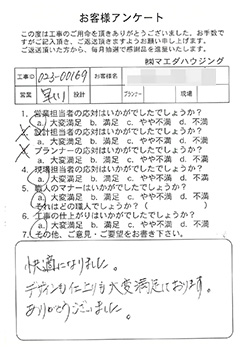 お客様アンケート
この度は工事のご用命を頂きありがとうございました。お手数で
すがご記入頂き、ご返送頂きますようお願い申し上げます。
ご返送頂いた方から、毎月抽選で感謝品を進呈いたします。
㈱マエダハウジング
工事ID 023-00169 お客様名
営業 設計 プランナー 現場
1. 営業担当者の応対はいかがでしたでしょうか?
a. 大変満足 b. 満足 c. やや不満 d. 不満
2. 設計担当者の応対はいかがでしたでしょうか?
a. 大変満足 b. 満足 c. やや不満 d. 不満
3. プランナーの応対はいかがでしたでしょうか?
a. 大変満足 b. 満足 c. やや不満 d. 不満
4. 現場担当者の応対はいかがでしたでしょうか?
a. 大変満足 b. 満足 c. やや不満 d. 不満
5. 職人のマナーはいかがでしたでしょうか?
a. 大変満足 b. 満足 c. やや不満 d. 不満
それはどの職人でしょうか? (
6. 工事の仕上がりはいかがでしたでしょうか?
a. 大変満足 b. 満足 c. やや不満 d. 不満
7. その他、ご意見・ご要望をお書き下さい。
快適になりました。
デザインも仕上りも大変満足しております。
ありがとうございました。